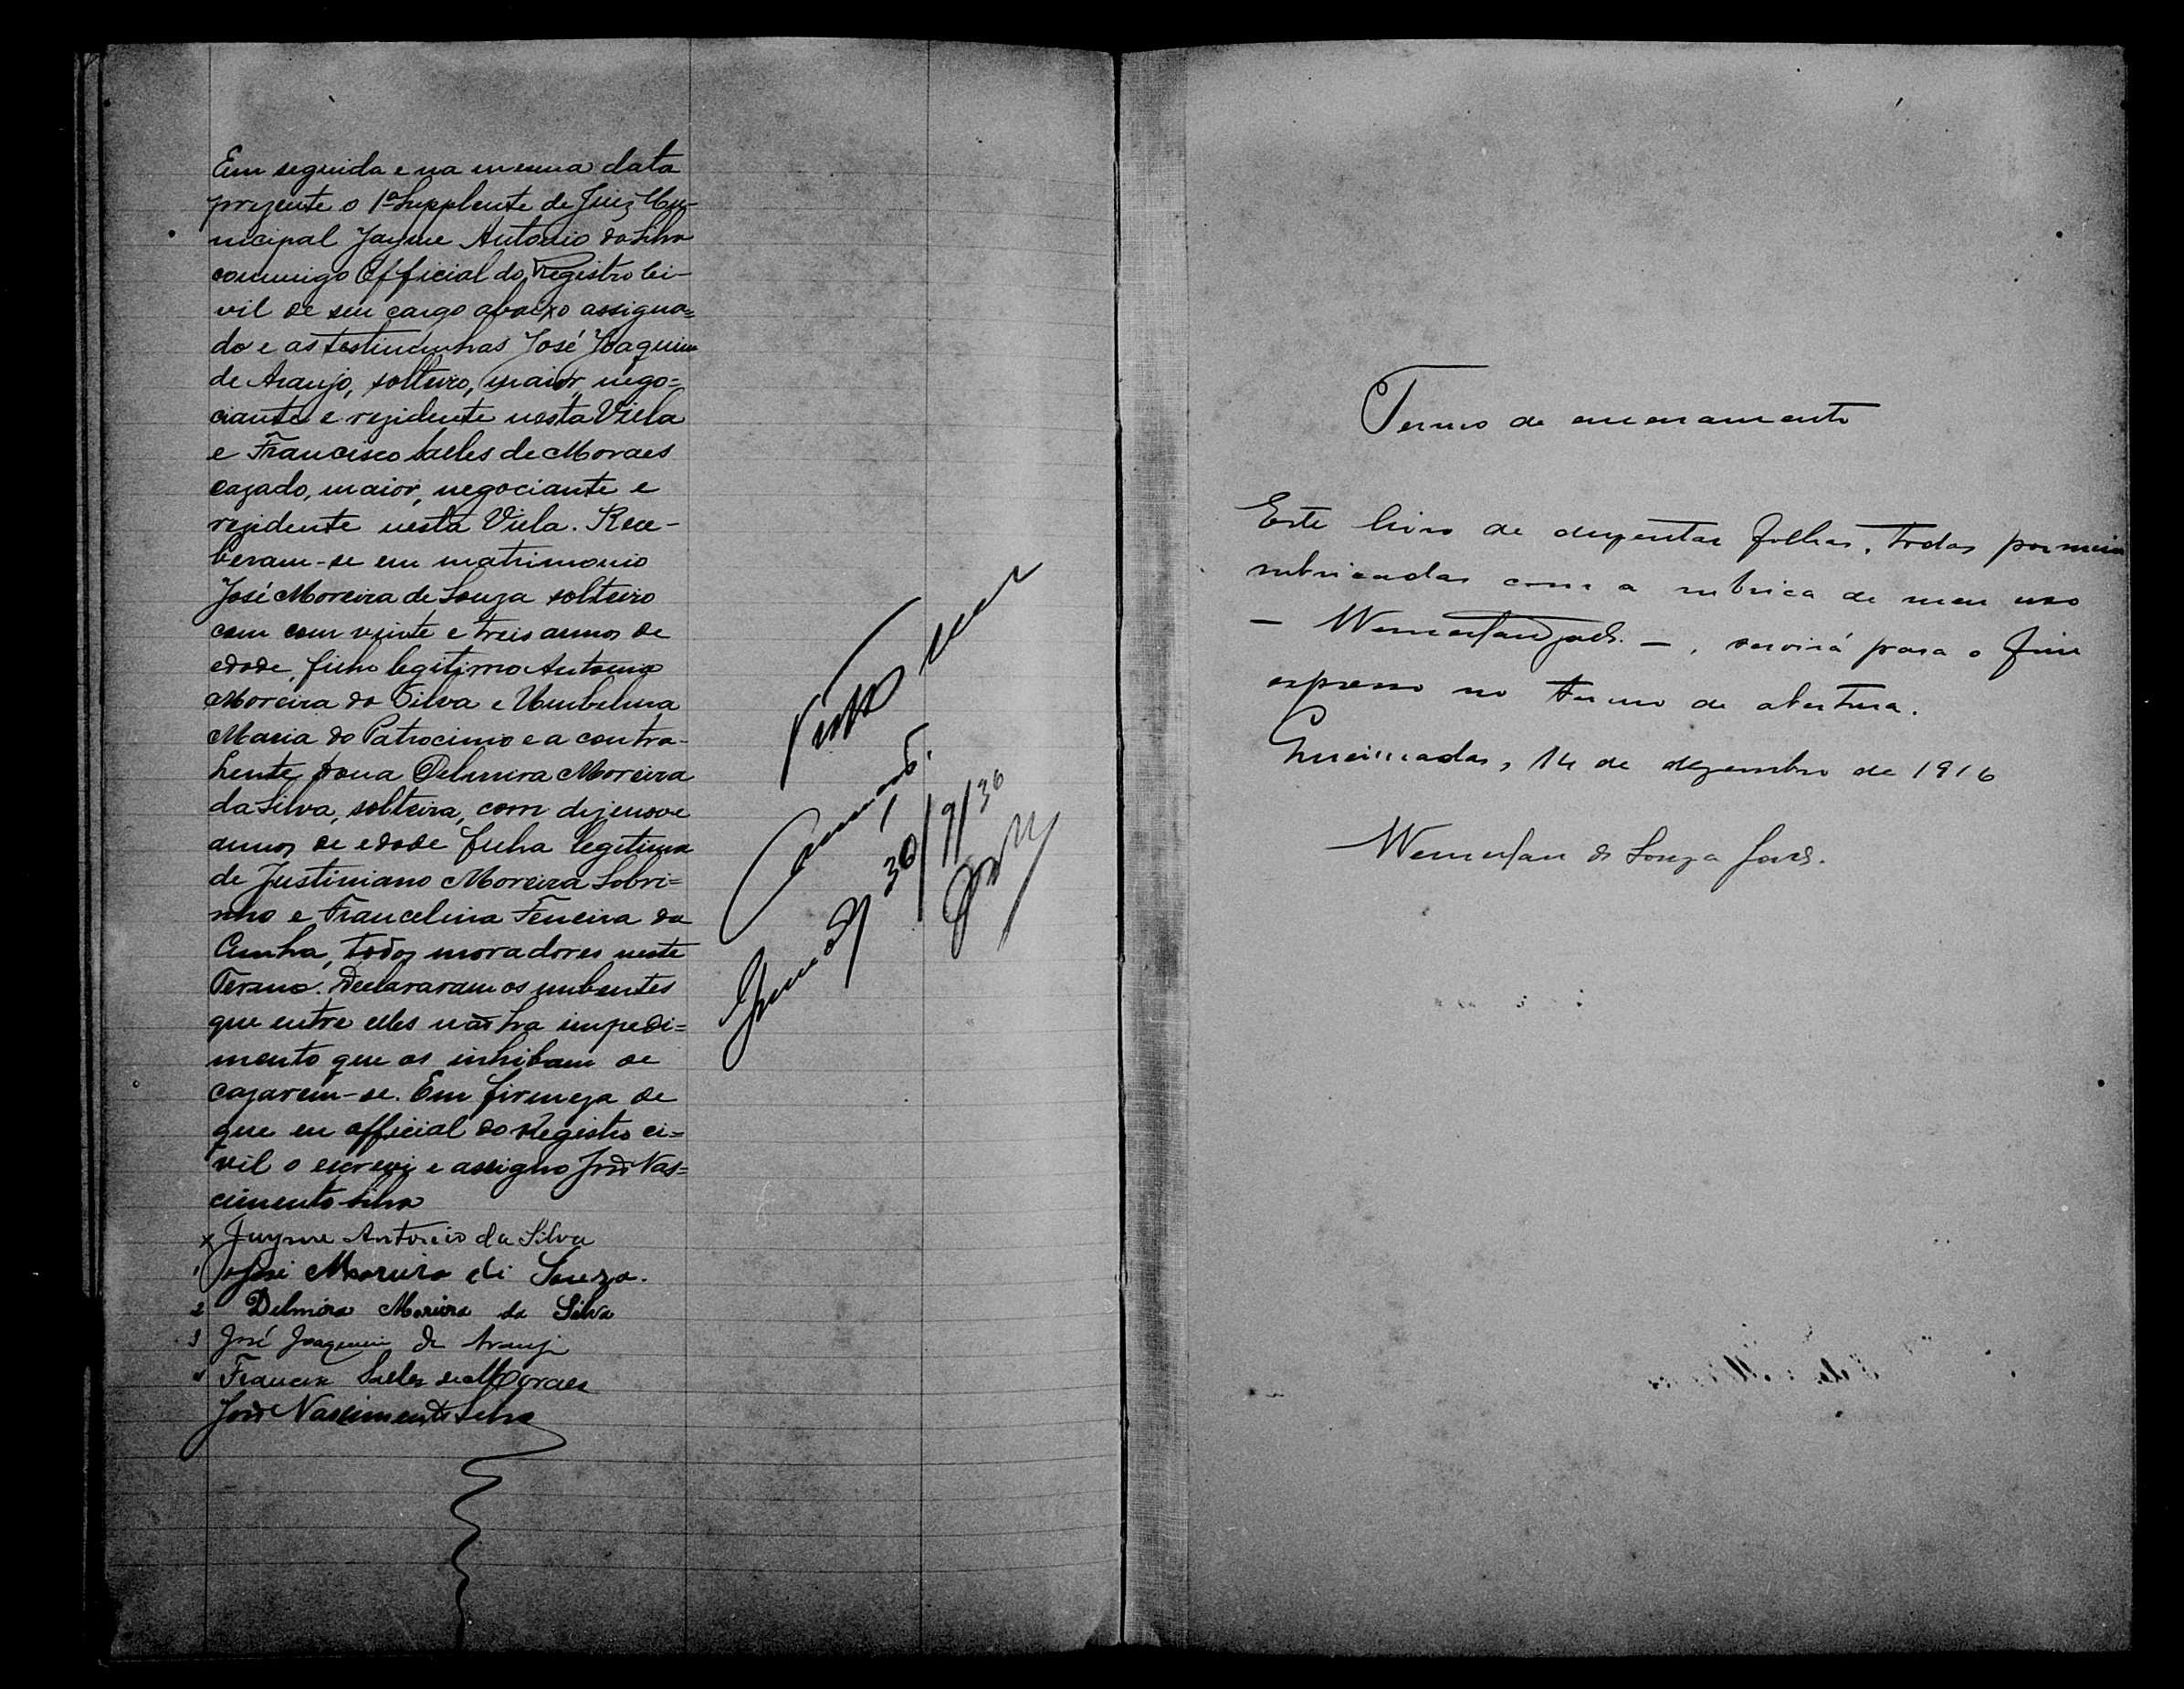 Em seguida e na mesma data
prezente o 1º Supplente de Juiz Mu-
nicipal Jayme Antonio da Silva
commigo Official do Registro Ci-
vil de seu cargo abaixo assigna=
do e as testimunhas José Joaquim
de Araujo, solteiro, maior, nego=
ciante e rezidente nesta Villa
e Francisco Salles de Moraes
cazado, maior, negociante e
rezidente nesta Villa. Rece-
beram-se em matrimonio
José Moreira de Souza solteiro
com com vzinte e treis annos de
edade, filho legitimo Antonio
Moreira da Silva e Umbelina
Maria do Patrocinio e a contra-
hente dona Delmira Moreira
da Silva, solteira, com dezenove
annos de edade filha legitima
de Justiniano Moreira Sobri=
nho e Francelina Ferreira da
Cunha, todos moradores neste
Termo. Declararam os nubentes
que entre elles não ha impedi=
mento que os inhibam de
cazarem-se. Em firmeza de
que eu official do Registro ci=
vil o escrevi e assigno José Nas=
cimento Silva
x Jayme Antonio da Silva
1 José Moreira di Souza.
2 Delmira Moreira da Silva
3 José Joaquim de Araujo
4 Francisco Salles de Moraes
José Nascimento Silva
Visto em
30/9/36
Termo de encerramento
Este livro de duzentas folhas, todas por mim
rubricadas com a rubrica de meu uso
— —, servirá para o fim
expresso no termo de abertura.
Queimadas, 14 de dezembro de 1916
de Souza